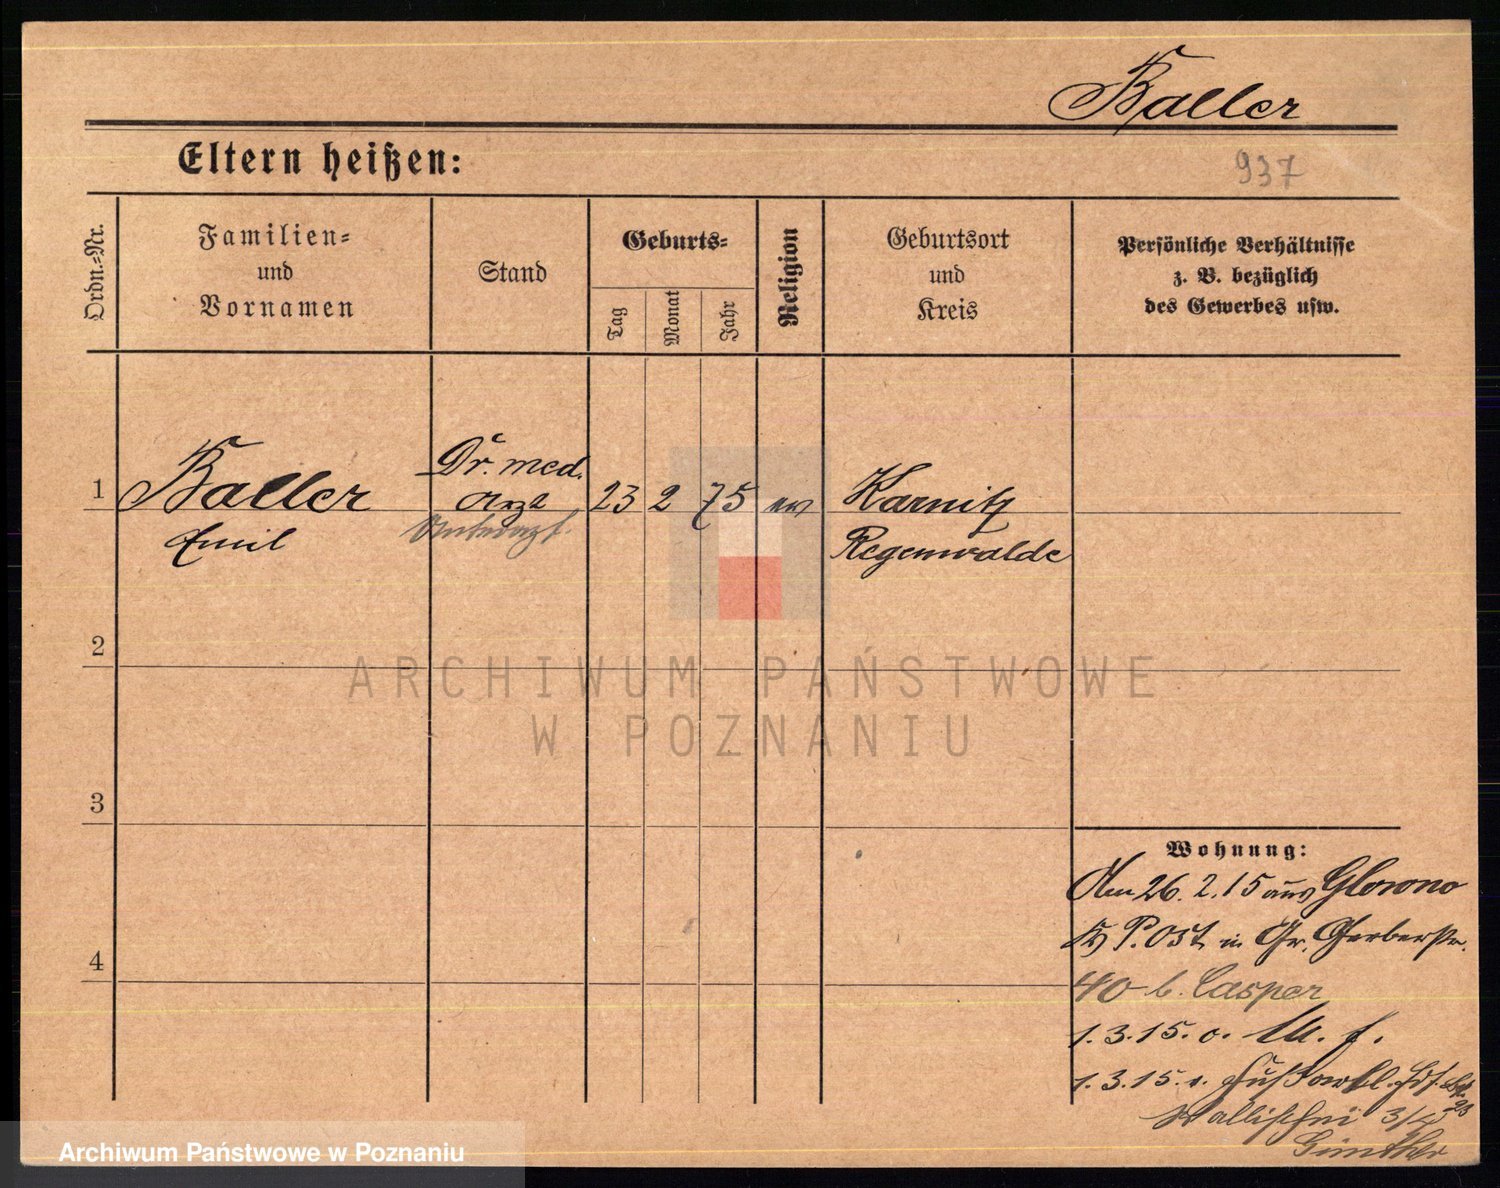 Baller
Eltern heißen:
937
Ordn.-Nr.
Familien-
und
Vornamen
Stand
Geburts-
Tag
Monat
Jahr
Religion
Geburtsort
und
Kreis
Persönliche Verhältnisse
z. B. bezüglich
des Gewerbes usw.
1
Baller
Emil
Dr. med.
Arzt
Unterarzt
23
2
75
ev
Karnitz
Regenwalde
2
3
4
Wohnung:
26. 2. 15 aus Glowno
P. Ost in Gr. Gerberstr.
40 b. Casper
1. 3. 15. o.
1. 3. 15.
Wallischei 3/4
Günther
ARCHIWUM PAŃSTWOWE
W POZNANIU
Archiwum Państwowe w Poznaniu